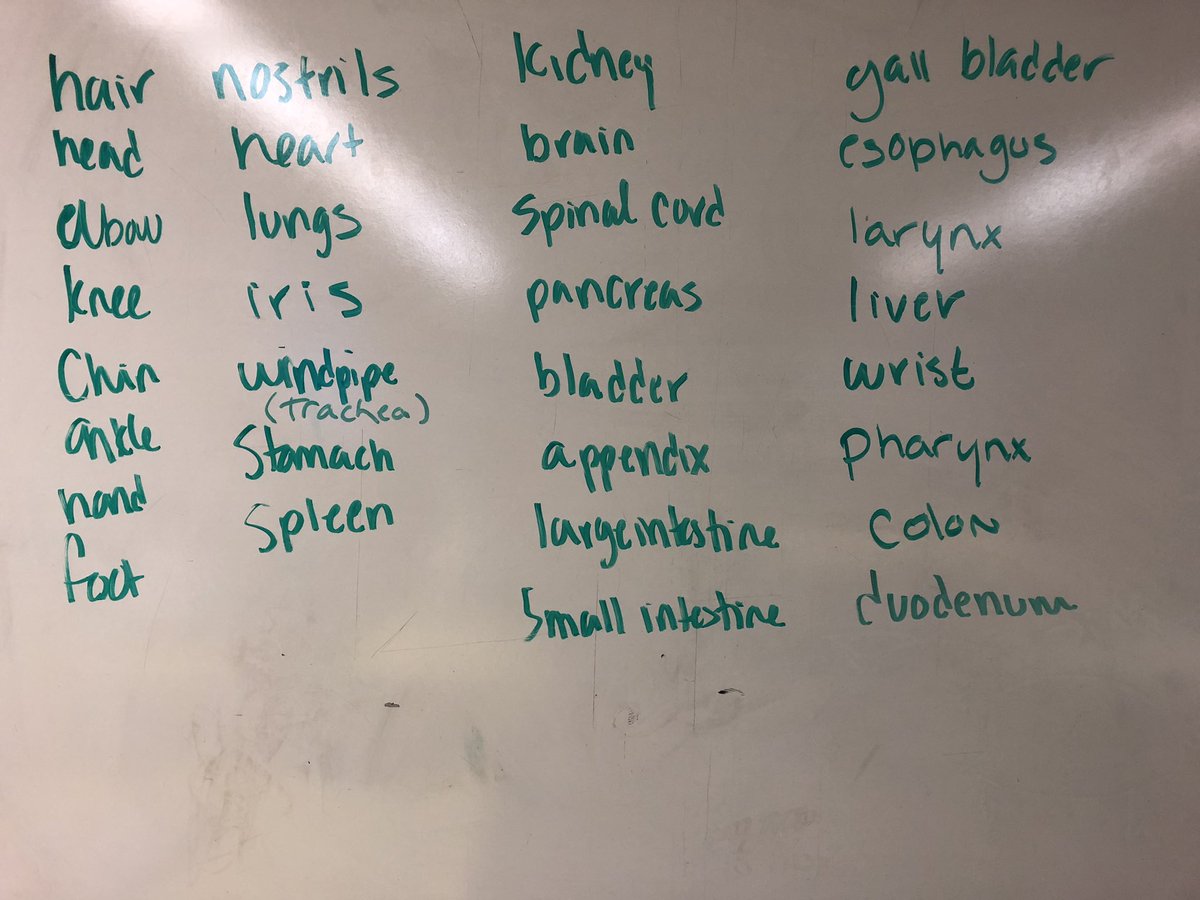 hair
head
elbow
knee
Chin
ankle
hand
foot
nostrils
heart
lungs
iris
windpipe
(trachea)
Stomach
Spleen
kidney
brain
Spinal cord
pancreas
bladder
appendix
large intestine
Small intestine
gall bladder
esophagus
larynx
liver
wrist
pharynx
colon
duodenum